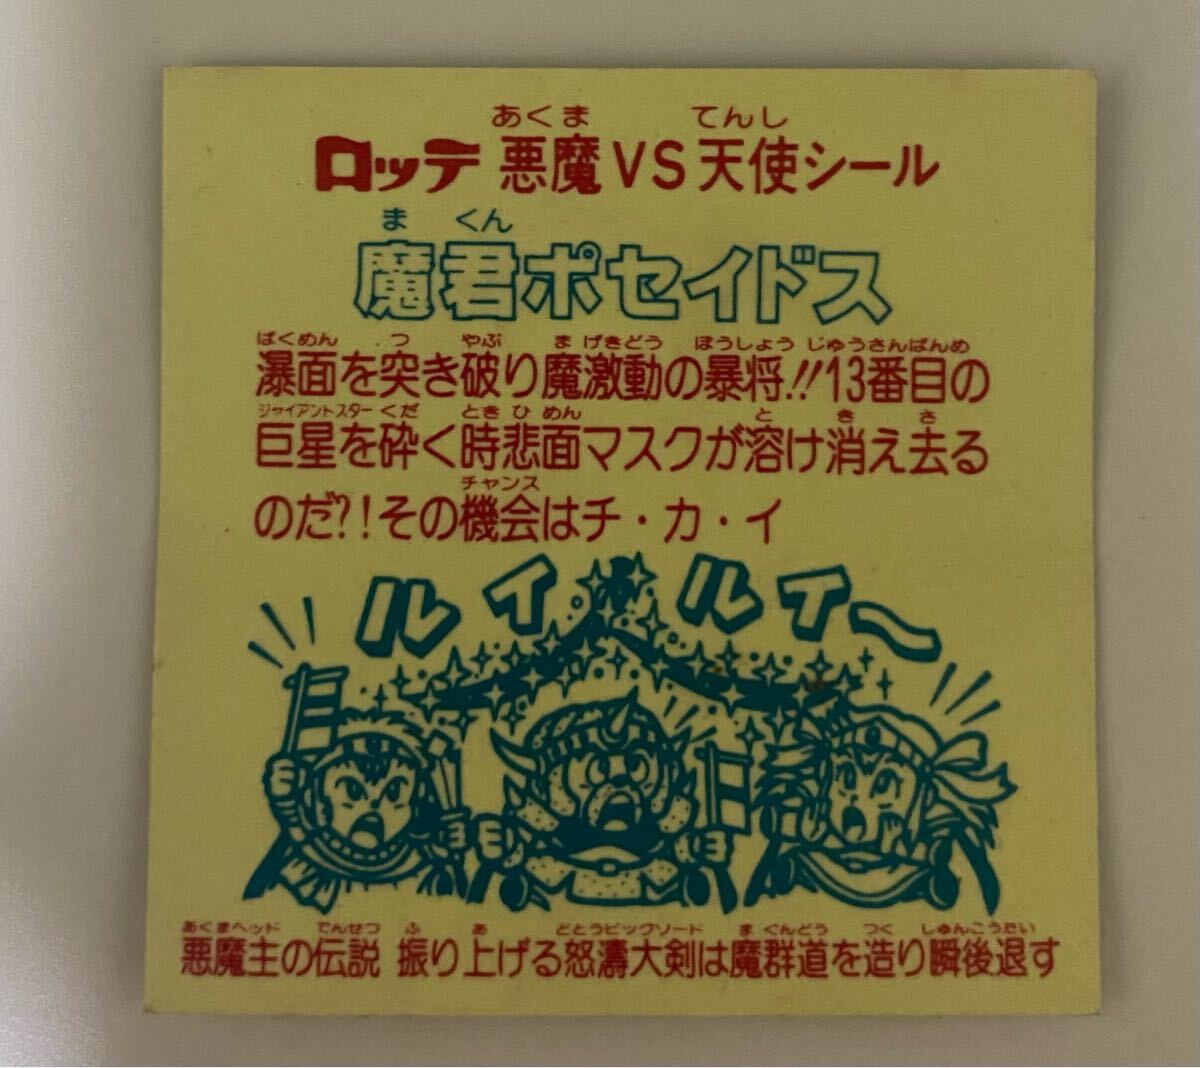 あくま てんし
ロッテ 悪魔VS天使シール
ま くん
魔君ポセイドス
ばくめん つ やぶ ま げきどう ぼうしょう じゅうさんばんめ
瀑面を突き破り魔激動の暴将!!13番目の
ジャイアントスター くだ とき ひ めん と き さ
巨星を砕く時悲面マスクが溶け消え去る
チャンス
のだ?!その機会はチ・カ・イ
ルイ ルイ〜
あくまヘッド でんせつ ふ あ どとうビッグソード ま ぐんどう つく しゅんこうたい
悪魔主の伝説 振り上げる怒濤大剣は魔群道を造り瞬後退す